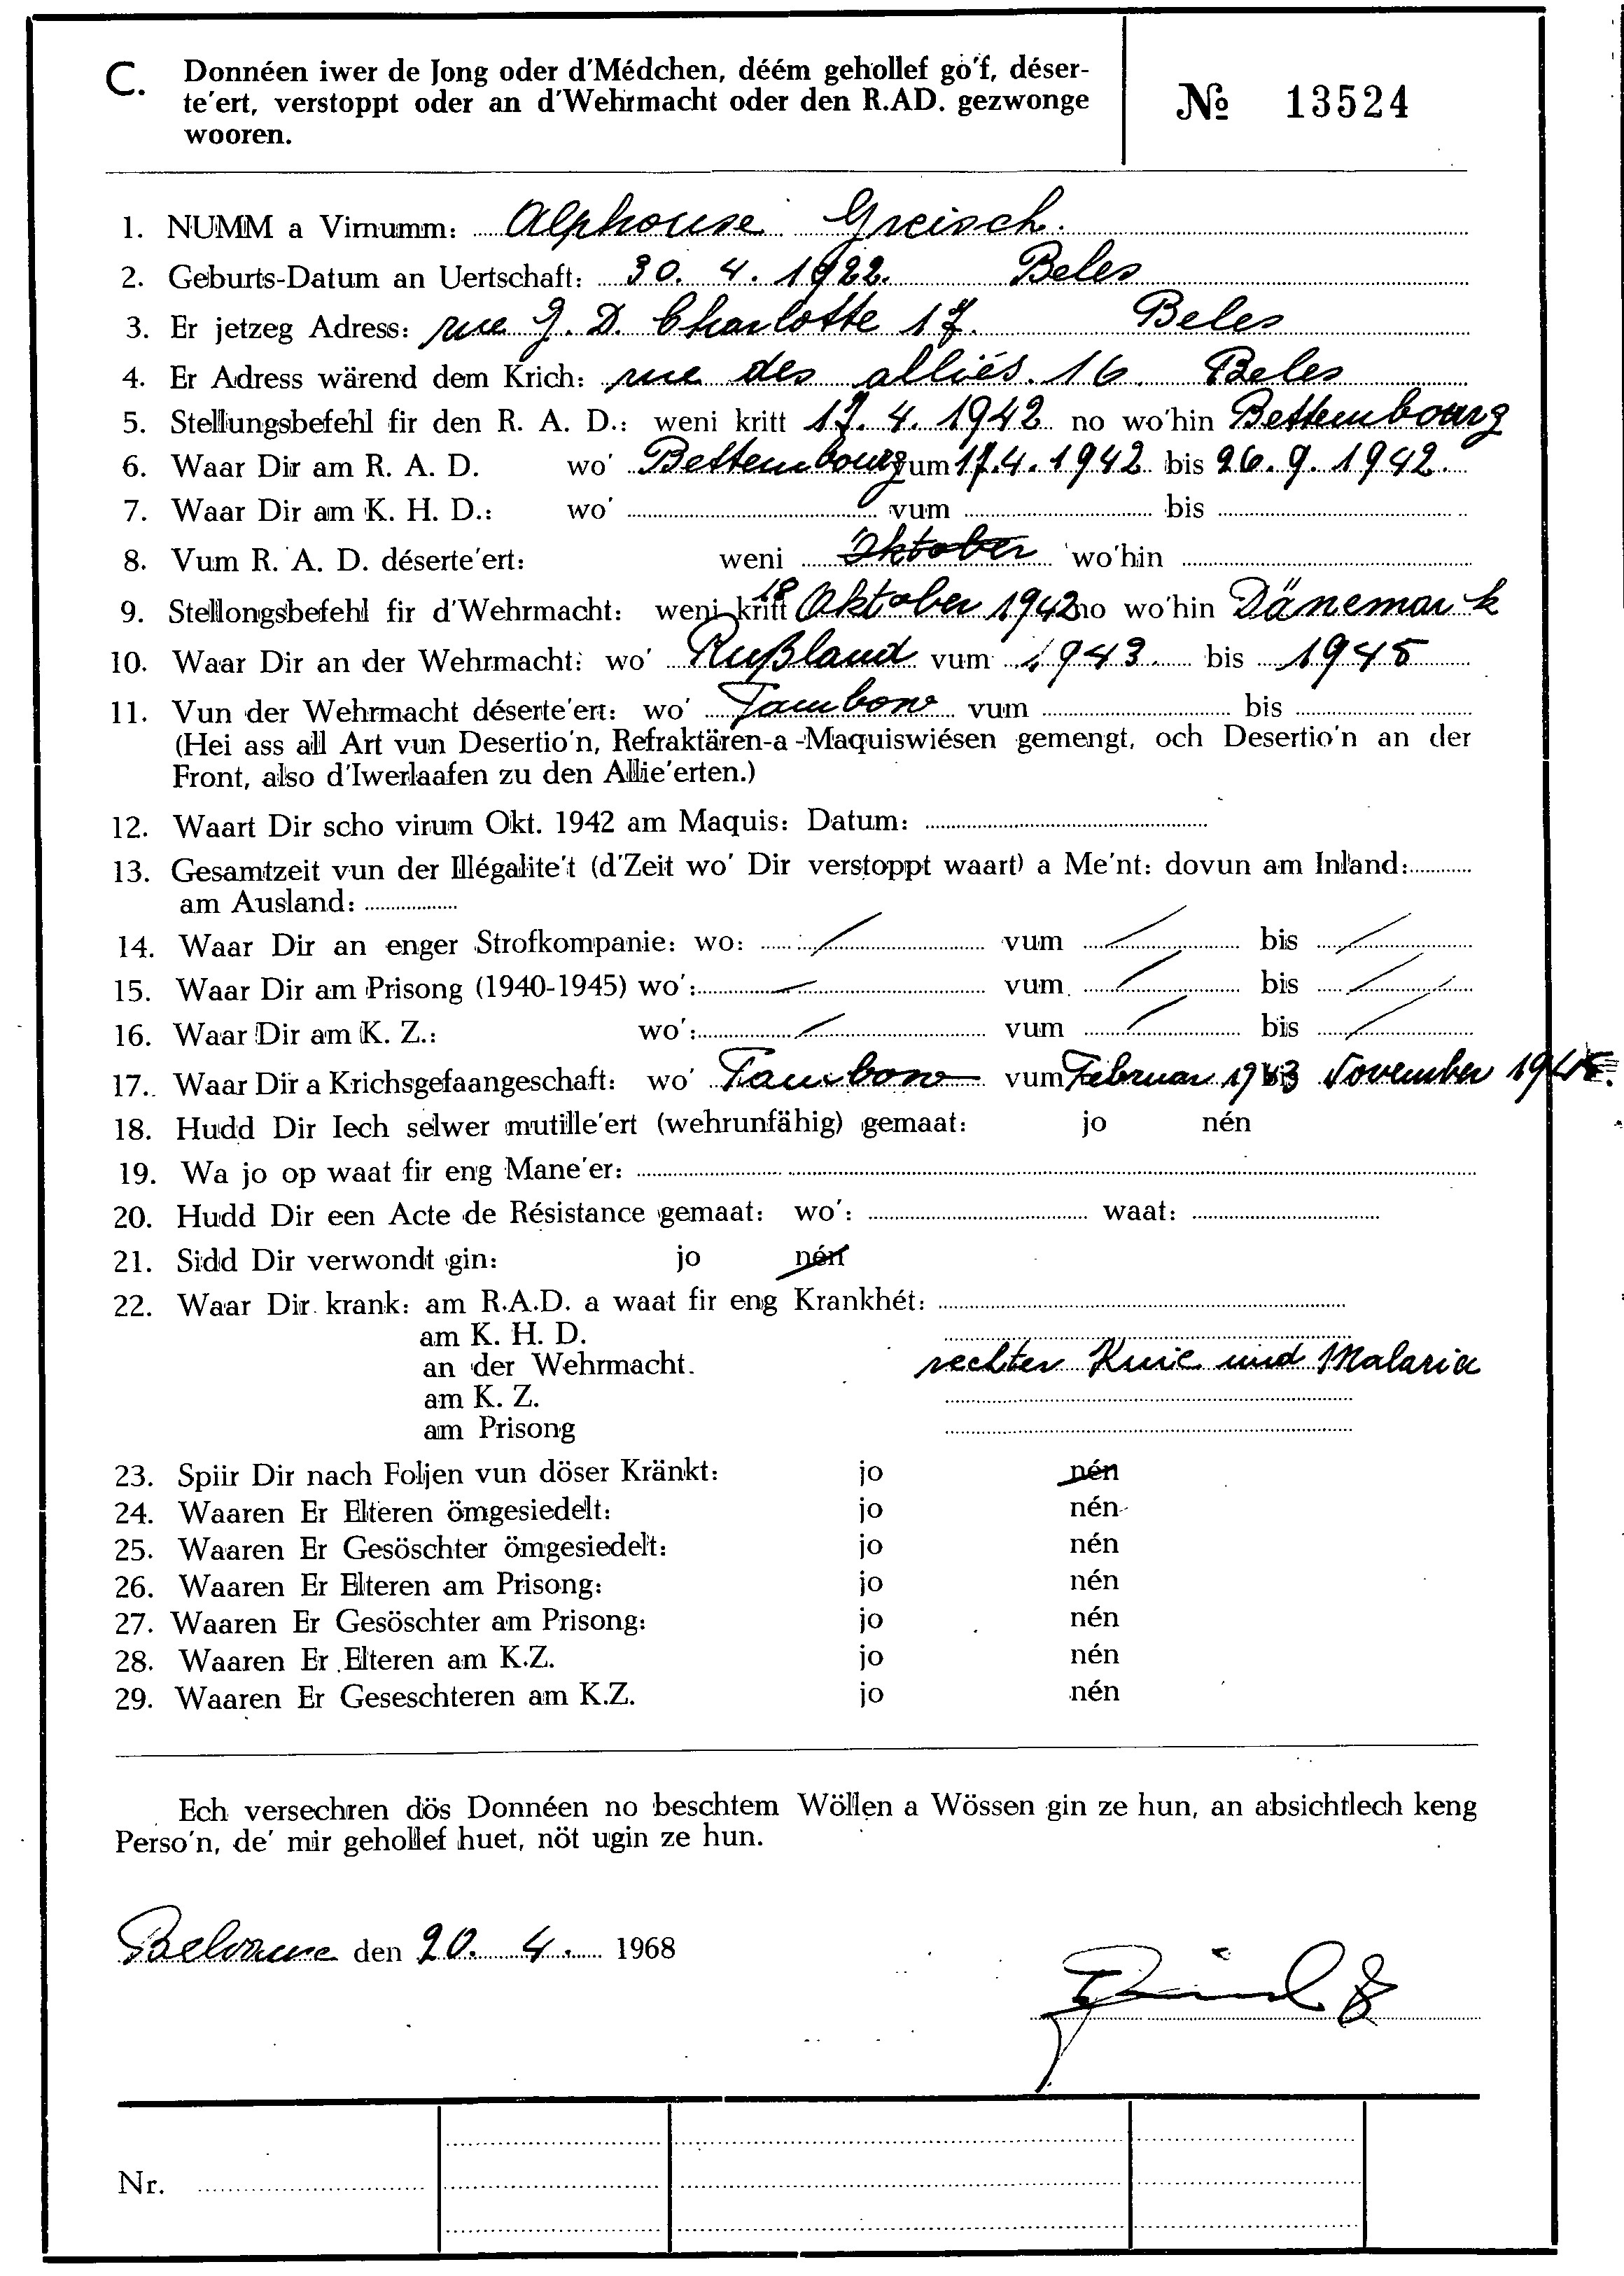 C. Donnéen iwer de Jong oder d'Médchen, déém gehollef go'f, déser-
te'ert, verstoppt oder an d'Wehrmacht oder den R.AD. gezwonge
wooren.
№ 13524
1. NUMM a Virnumm: Alphonse Greisch.
2. Geburts-Datum an Uertschaft: 30. 4. 1922. Beles
3. Er jetzeg Adress: rue G. D. Charlotte 17. Beles
4. Er Adress wärend dem Krich: rue des alliés. 16. Beles
5. Stellungsbefehl fir den R. A. D.: weni kritt 17. 4. 1942 no wo'hin Bettembourg
6. Waar Dir am R. A. D. wo' Bettembourg vum 17.4.1942 bis 26.9.1942.
7. Waar Dir am K. H. D.: wo' vum bis
8. Vum R. A. D. déserte'ert: weni Oktober wo'hin
9. Stellongsbefehl fir d'Wehrmacht: weni kritt 18 Oktober 1942 no wo'hin Dänemark
10. Waar Dir an der Wehrmacht: wo' Rußland vum 1943. bis 1945
11. Vun der Wehrmacht déserte'ert: wo' Tambow vum bis
(Hei ass all Art vun Desertio'n, Refraktären-a-Maquiswiésen gemengt, och Desertio'n an der
Front, also d'Iwerlaafen zu den Allie'erten.)
12. Waart Dir scho virum Okt. 1942 am Maquis: Datum:
13. Gesamtzeit vun der Illégalite't (d'Zeit wo' Dir verstoppt waart) a Me'nt: dovun am Inland:
am Ausland:
14. Waar Dir an enger Strofkompanie: wo: vum bis
15. Waar Dir am Prisong (1940-1945) wo': vum bis
16. Waar Dir am K. Z.: wo': vum bis
17. Waar Dir a Krichsgefaangeschaft: wo' Tambow vum Februar 1943 bis November 1945.
18. Hudd Dir Iech selwer mutille'ert (wehrunfähig) gemaat: jo nén
19. Wa jo op waat fir eng Mane'er:
20. Hudd Dir een Acte de Résistance gemaat: wo': waat:
21. Sidd Dir verwondt gin: jo nén
22. Waar Dir krank: am R.A.D. a waat fir eng Krankhét:
am K. H. D.
an der Wehrmacht. rechter Knie und Malaria
am K. Z.
am Prisong
23. Spiir Dir nach Foljen vun döser Kränkt: jo nén
24. Waaren Er Elteren ömgesiedelt: jo nén
25. Waaren Er Gesöschter ömgesiedelt: jo nén
26. Waaren Er Elteren am Prisong: jo nén
27. Waaren Er Gesöschter am Prisong: jo nén
28. Waaren Er Elteren am K.Z. jo nén
29. Waaren Er Geseschteren am K.Z. jo nén
Ech versechren dös Donnéen no beschtem Wöllen a Wössen gin ze hun, an absichtlech keng
Perso'n, de' mir gehollef huet, nöt ugin ze hun.
den 20. 4. 1968
Nr.